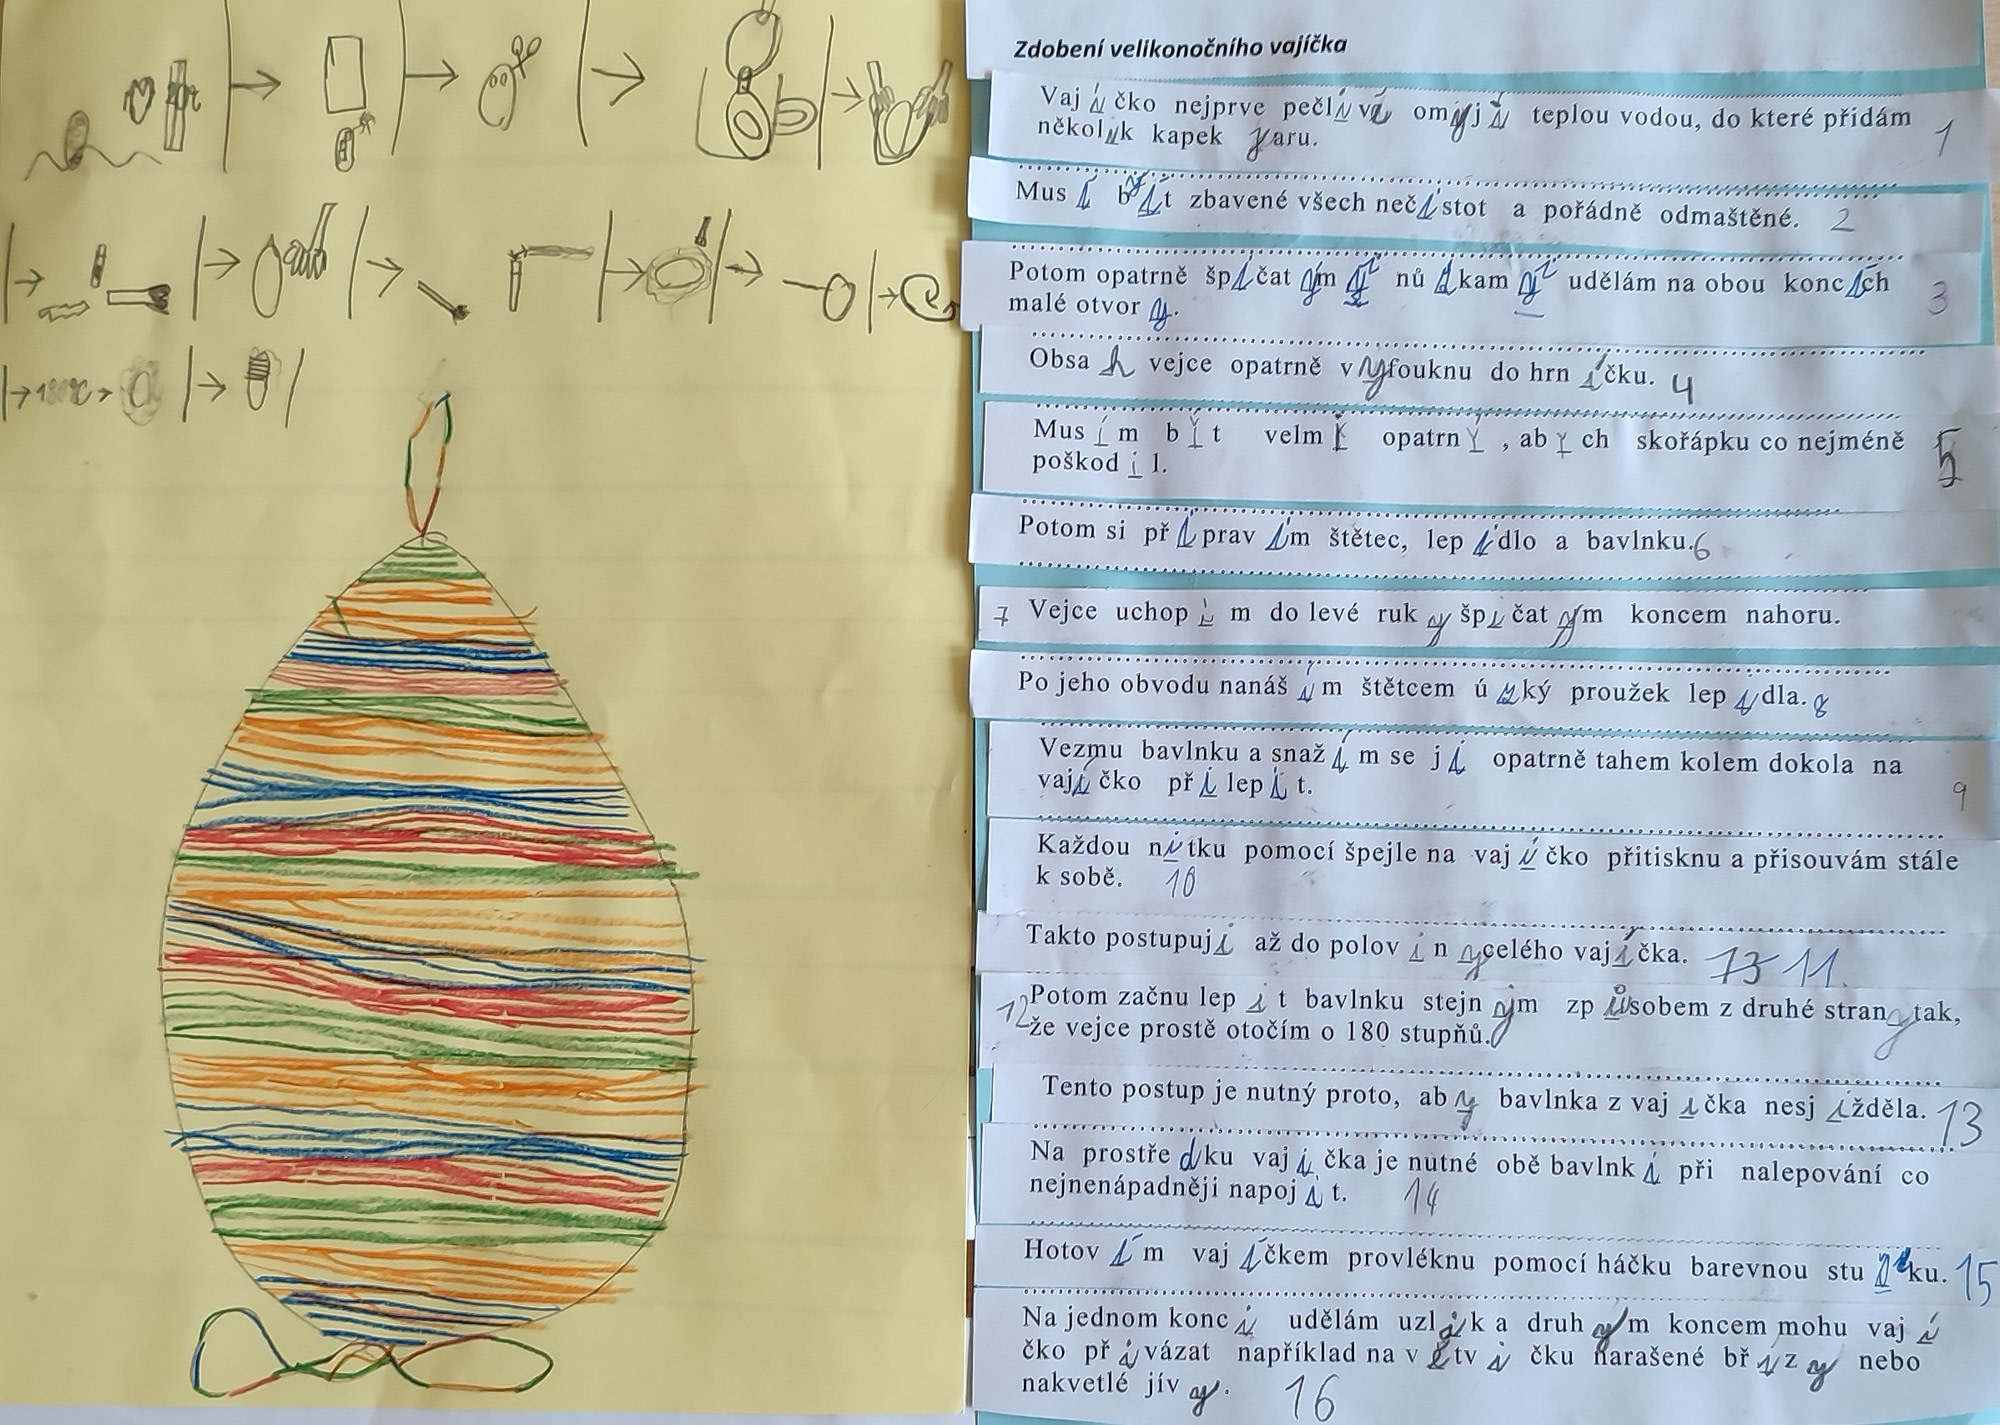 180°C
Zdobení velikonočního vajíčka
Vajíčko nejprve pečlivě omyji teplou vodou, do které přidám
několik kapek jaru. 1
Musí být zbavené všech nečistot a pořádně odmaštěné. 2
Potom opatrně špičatým nůžkam udělám na obou koncích
malé otvory. 3
Obsah vejce opatrně vyfouknu do hrníčku. 4
Musím být velmi opatrný, abych skořápku co nejméně
poškodil. 5
Potom si připravím štětec, lepidlo a bavlnku. 6
7 Vejce uchopím do levé ruky špičatým koncem nahoru.
Po jeho obvodu nanáším štětcem úzký proužek lepidla. 8
Vezmu bavlnku a snažím se jí opatrně tahem kolem dokola na
vajíčko přilepit. 9
Každou nitku pomocí špejle na vajíčko přitisknu a přisouvám stále
k sobě. 10
Takto postupuji až do poloviny celého vajíčka. 11.
12 Potom začnu lepit bavlnku stejným způsobem z druhé strany tak,
že vejce prostě otočím o 180 stupňů.
Tento postup je nutný proto, aby bavlnka z vajíčka nesjížděla. 13
Na prostředku vajíčka je nutné obě bavlnki při nalepování co
nejnenápadněji napojit. 14
Hotovím vajíčkem provléknu pomocí háčku barevnou stužku. 15
Na jednom konci udělám uzlík a druhým koncem mohu vají
čko přivázat například na větvičku narašené břízy nebo
nakvetlé jívy. 16